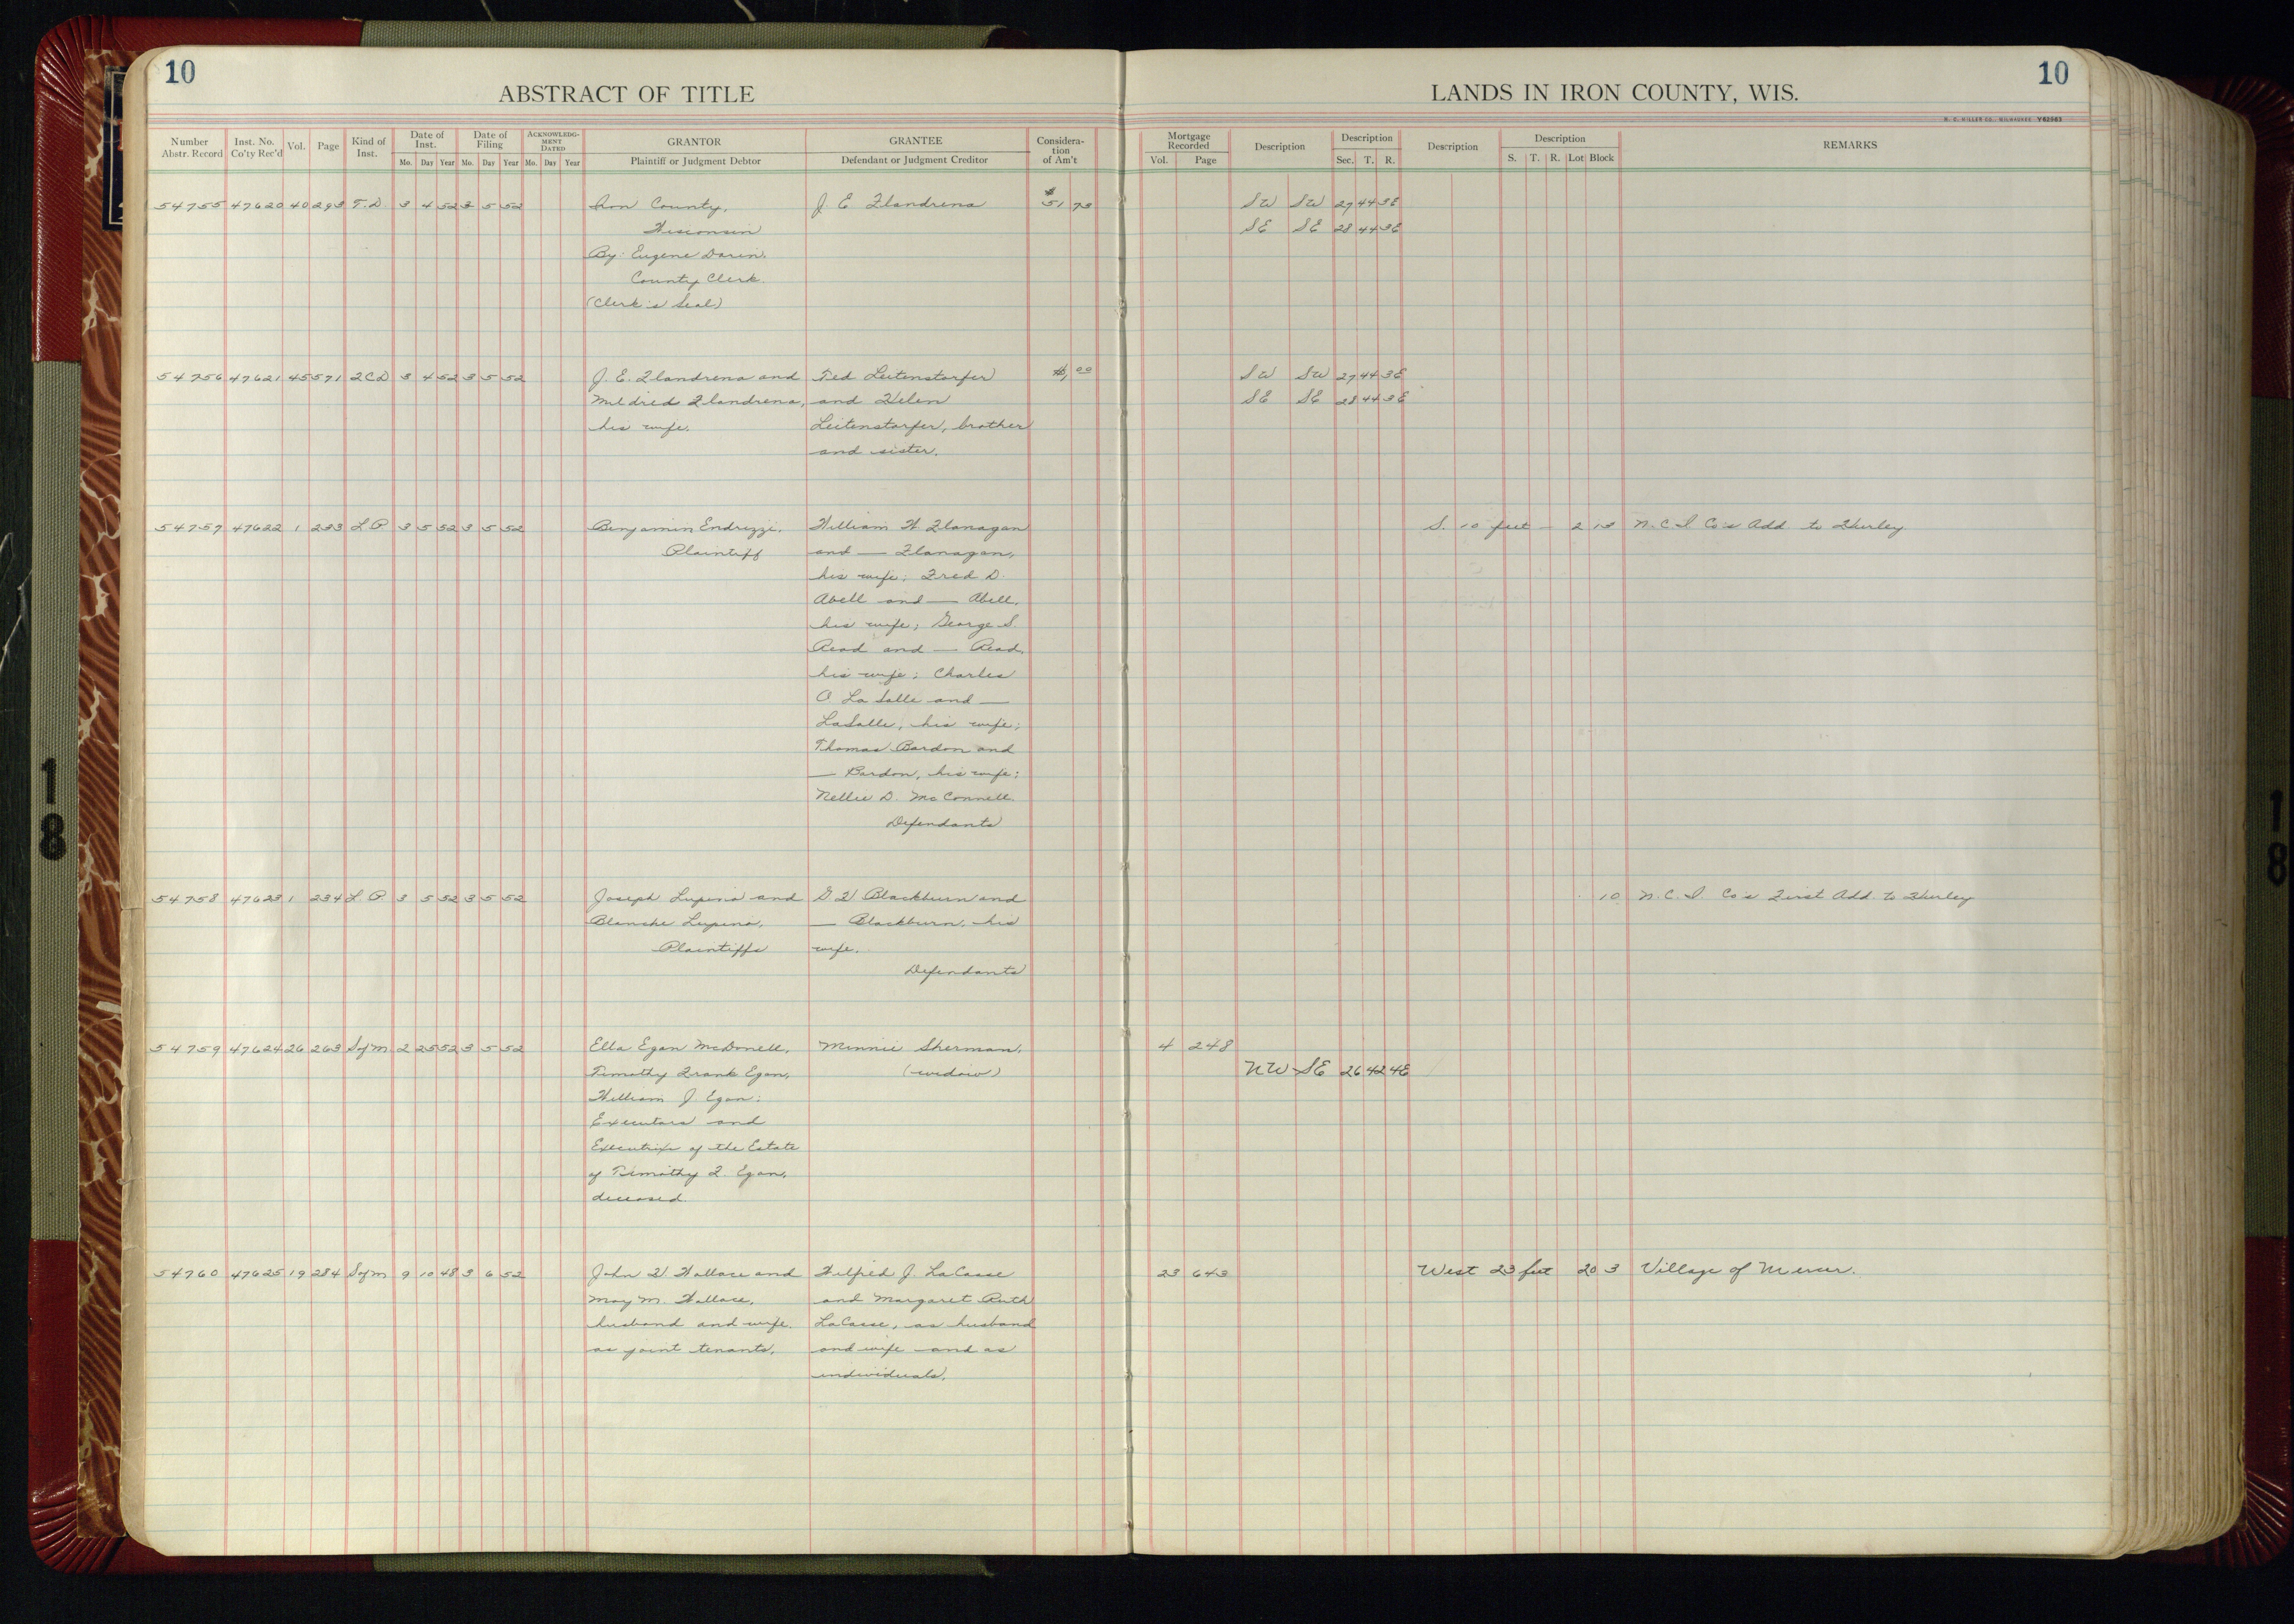 10
10
ABSTRACT OF TITLE
LANDS IN IRON COUNTY, WIS.
H. C. MILLER CO., MILWAUKEE Y62563
Number Abstr. Record Inst. No. Co'ty Rec'd Vol. Page Kind of Inst. Date of Inst. Mo. Day Year Date of Filing Mo. Day Year ACKNOWLEDGMENT DATED Mo. Day Year GRANTOR Plaintiff or Judgment Debtor GRANTEE Defendant or Judgment Creditor Consideration of Am't
Mortgage Recorded Vol. Page Description Description Sec. T. R. Description Description S. T. R. Lot Block REMARKS
54755 47620 40 293 T.D. 3 4 52 3 5 52 Iron County, J. E Flandrena $51 73 SW SW 27 44 3E
Wisconsin SE SE 28 44 3E
By: Eugene Darin,
County Clerk.
(Clerk's Seal)
54756 47621 45 571 2CD 3 4 52 3 5 52 J. E. Flandrena and Ted Leitenstorfer $1,00 SW SW 27 44 3E
Mildred Flandrena, and Helen SE SE 28 44 3E
his wife. Leitenstorfer, brother
and sister.
54757 47622 1 233 L P 3 5 52 3 5 52 Benjamin Endrizzi, William W. Flanagan S. 10 feet — 2 13 N. C. I Co's Add to Hurley
Plaintiff and — Flanagan,
his wife; Fred D.
Abell and — Abell,
his wife; George S.
Read and — Read,
his wife; Charles
O La Salle and —
LaSalle, his wife;
Thomas Bardon and
— Bardon, his wife;
Nellie D. McConnell.
Defendants
54758 47623 1 234 L P. 3 5 52 3 5 52 Joseph Lupino and Blackburn and 10 N. C. I. Co's First Add. to Hurley
Blanche Lupino, — Blackburn, his
Plaintiffs wife.
Defendants
54759 47624 26 263 SofM 2 25 52 3 5 52 Ella Egan McDonell, Minnie Sherman, 4 248
Timothy Frank Egan, (widow) NW SE 26 42 4E
William J. Egan:
Executors and
Executrix of the Estate
of Timothy F. Egan,
deceased.
54760 47625 19 284 SofM 9 10 48 3 6 52 John W. Wallace and Wilfred J. LaCasse 23 643 West 23 feet 20 3 Village of Mercer.
May M. Wallace, and Margaret Ruth
husband and wife. LaCasse, as husband
as joint tenants, and wife and as
individuals.
18
18